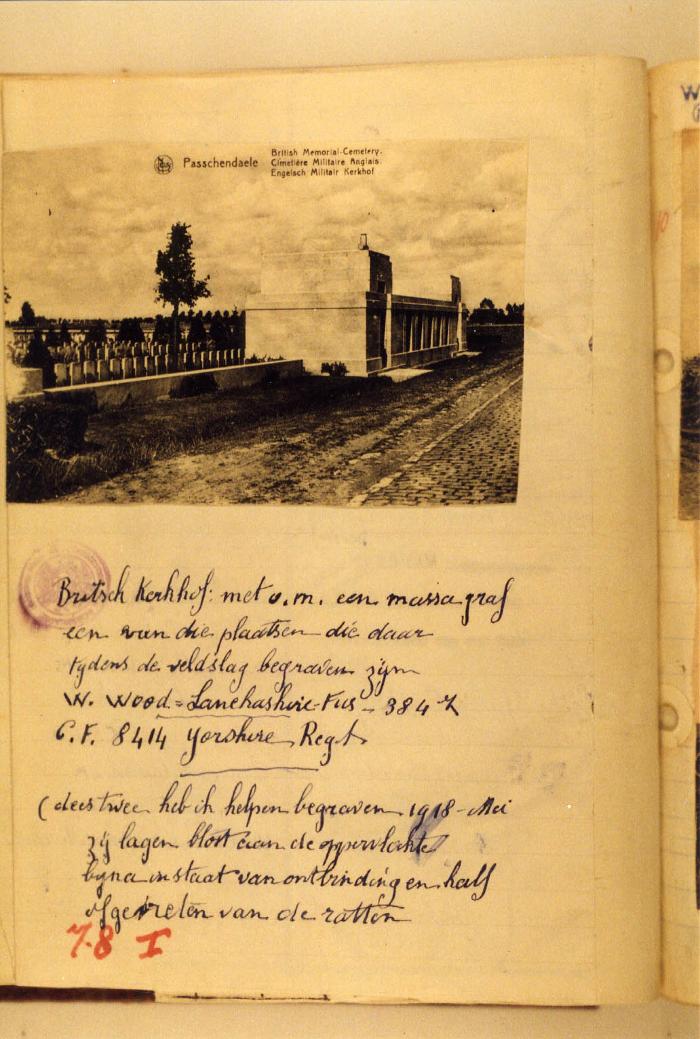 Passchendaele
British Memorial-Cemetery.
Cimetière Militaire Anglais.
Engelsch Militair Kerkhof
Britsch Kerkhof: met o.m. een massa graf
een van die plaatsen die daar
tydens de veldslag begraven zijn
W. Wood = Lanchashire-Fus - 384
C.F. 8414 Yorshire Regt
(dees twee heb ik helpen begraven 1918-Mei
zij lagen bloot aan de oppervlakte
byna in staat van ontbinding en half
afgevreten van de ratten
7.8 I
W